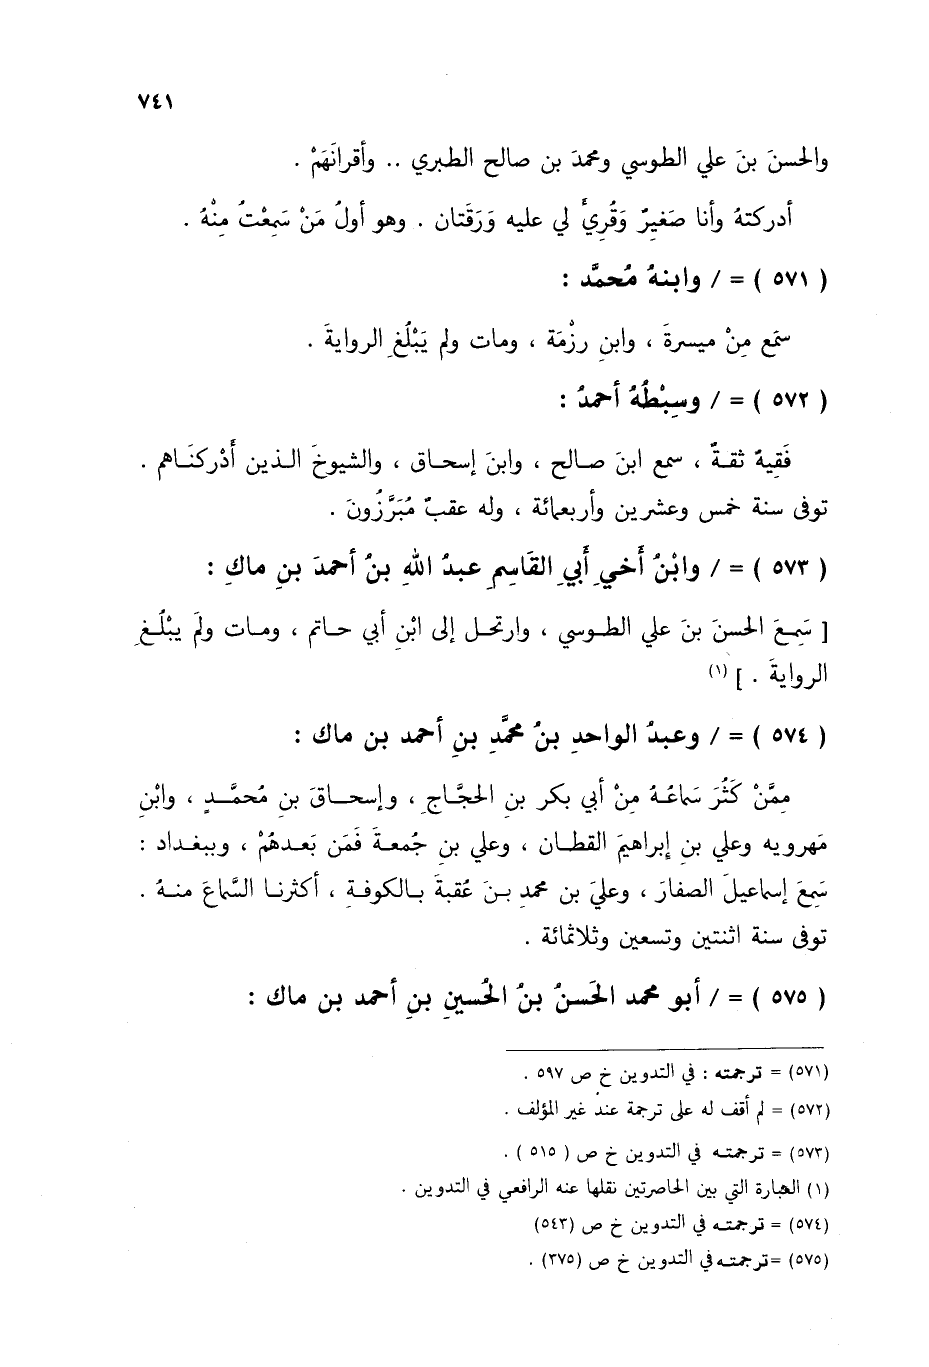 ٧٤١
والحسنَ بنَ علي الطوسي ومحمدَ بن صالح الطبري .. وأقرانَهَمْ .
أدركتهُ وأنا صَغِيرٌ وَقُرِيءَ لي عليه وَرَقَتان . وهو أولُ مَنْ سَمِعْتُ مِنْهُ .
( ٥٧١ ) = / وابنهُ مُحمَّد :
سمَع مِنْ ميسرةَ ، وابنِ رزْمَة ، ومات ولم يَبْلُغِ الروايةَ .
( ٥٧٢ ) = / وسِبْطُهُ أحمدُ :
فَقِيهٌ ثقةٌ ، سمع ابنَ صالح ، وابنَ إسحاق ، والشيوخَ الذين أَدْركنَاهم .
توفى سنة خمس وعشرين وأربعمائة ، وله عقبٌ مُبَرَّزُونَ .
( ٥٧٣ ) = / وابْنُ أَخي أَبي القَاسِمِ عبدُ اللهِ بنُ أحمدَ بنِ ماكِ :
[ سَمِعَ الحسنَ بنَ علي الطوسي ، وارتحل إلى ابْنِ أبي حاتم ، ومات ولَم يبْلُغِ
الروايةَ . ] (١)
( ٥٧٤ ) = / وعبدُ الواحدِ بنُ محمَّد بنِ أحمد بن ماك :
مِمَّنْ كَثُرَ سَماعُهُ مِنْ أبي بكر بنِ الحجَّاجِ ، وإسحاقَ بنِ مُحمَّدٍ ، وابْنِ
مَهرويه وعلي بنِ إبراهيمَ القطان ، وعلي بنِ جُمعةَ فَمَن بَعدهُمْ ، وببغداد :
سَمِعَ إسماعيلَ الصفارَ ، وعليَ بن محمد بنَ عُقبةَ بالكوفة ، أكثرنا السَّماعَ منهُ .
توفى سنة اثنتين وتسعين وثلاثمائة .
( ٥٧٥ ) = / أبو محمد الحَسنُ بنُ الحُسينِ بنِ أحمد بن ماك :
(٥٧١) = ترجمته : في التدوين خ ص ٥٩٧ .
(٥٧٢) = لم أقف له على ترجمة عند غير المؤلف .
(٥٧٣) = ترجمته في التدوين خ ص ( ٥١٥ ) .
(١) العبارة التي بين الحاصرتين نقلها عنه الرافعي في التدوين .
(٥٧٤) = ترجمته في التدوين خ ص (٥٤٣)
(٥٧٥) =ترجمته في التدوين خ ص (٢٧٥) .